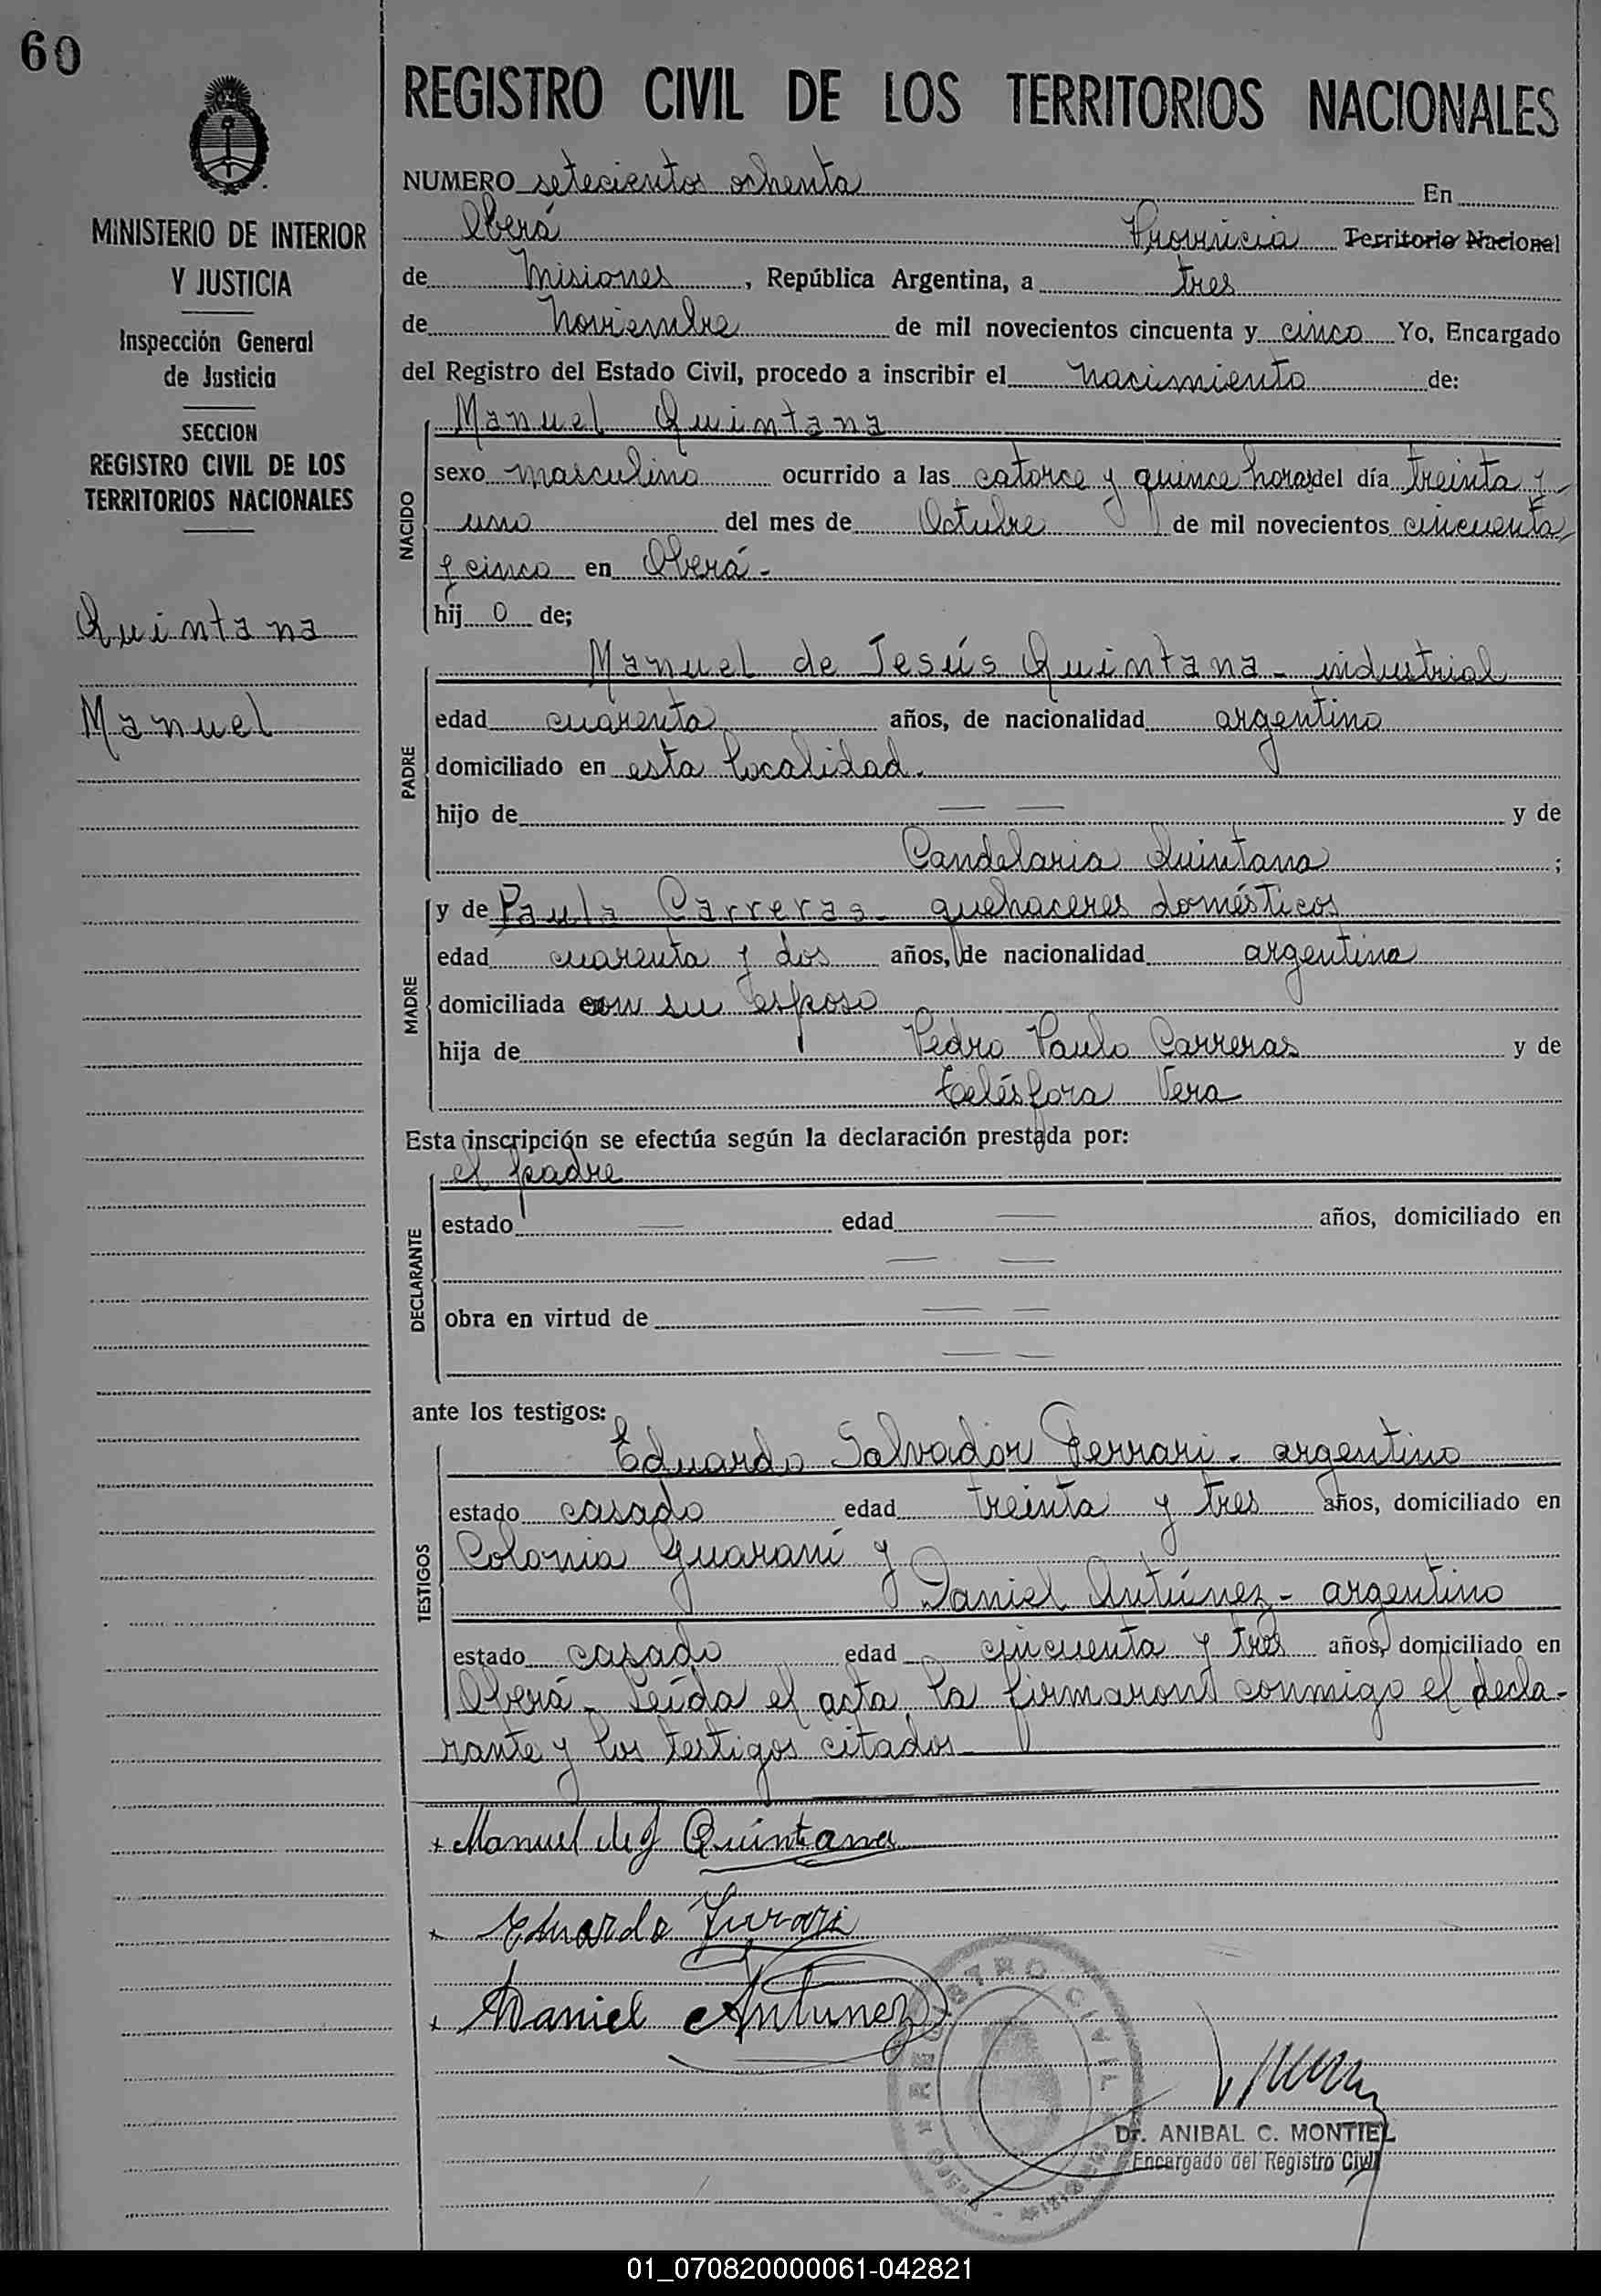 60
MINISTERIO DE INTERIOR
Y JUSTICIA
Inspección General
de Justicia
SECCION
REGISTRO CIVIL DE LOS
TERRITORIOS NACIONALES
Quintana
Manuel
REGISTRO CIVIL DE LOS TERRITORIOS NACIONALES
NUMERO setecientos ochenta En
Oberá Provincia Territorio Nacional
de Misiones, República Argentina, a tres
de Noviembre de mil novecientos cincuenta y cinco Yo, Encargado
del Registro del Estado Civil, procedo a inscribir el nacimiento de:
NACIDO
Manuel Quintana
sexo masculino ocurrido a las catorce y quince horas del día treinta y
uno del mes de Octubre de mil novecientos cincuenta
y cinco en Oberá-
hij o de;
PADRE
Manuel de Jesús Quintana - industrial
edad cuarenta años, de nacionalidad argentino
domiciliado en esta localidad.
hijo de — — y de
Candelaria Quintana;
MADRE
y de Paula Carreras- quehaceres domésticos
edad cuarenta y dos años, de nacionalidad argentina
domiciliada con su esposo
hija de Pedro Paulo Carreras y de
Telésfora Vera
Esta inscripción se efectúa según la declaración prestada por:
DECLARANTE
el padre
estado — edad — años, domiciliado en
— —
obra en virtud de — —
— —
ante los testigos:
TESTIGOS
Eduardo Salvador Ferrari- argentino
estado casado edad treinta y tres años, domiciliado en
Colonia Guaraní y
Daniel Antúnez- argentino
estado casado edad cincuenta y tres años, domiciliado en
Oberá- Leída el acta, la firmaron conmigo el decla-
rante y los testigos citados
Manuel de J Quintana
Eduardo Ferrari
Daniel Antunez
REGISTRO CIVIL
Dr. ANIBAL C. MONTIEL
Encargado del Registro Civil
01_070820000061-042821